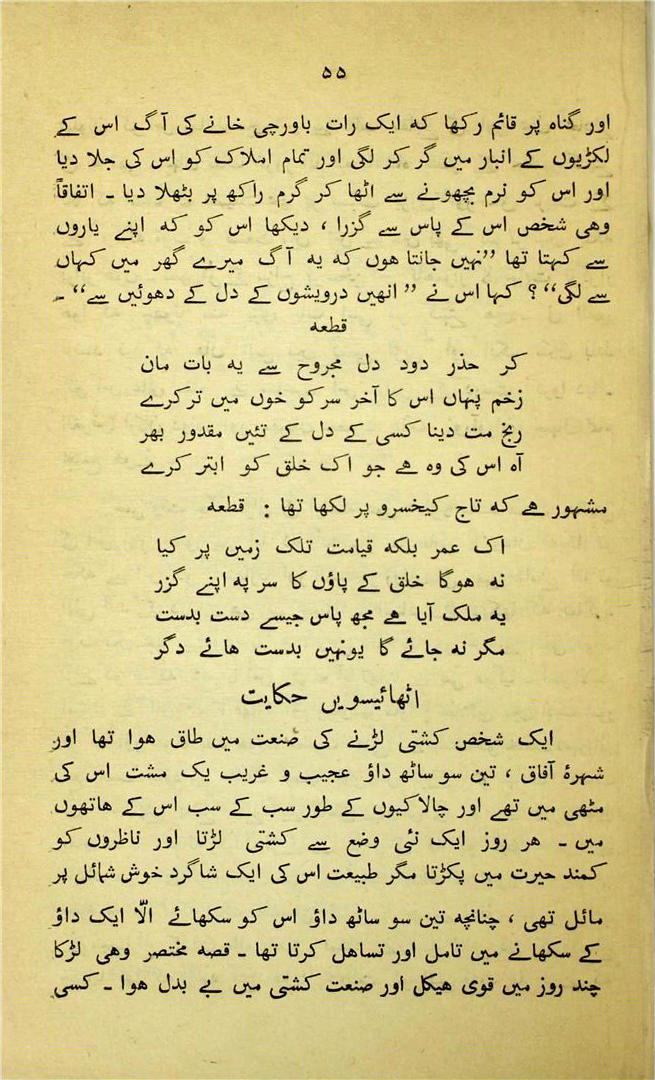 ۵۵
اور گناہ پر قائم رکھا کہ ایک رات باورچی خانے کی آگ اس کے
لکڑیوں کے انبار میں گر کر لگی اور تمام املاک کو اس کی جلا دیا
اور اس کو نرم بچھونے سے اٹھا کر گرم راکھ پر بٹھلا دیا ۔ اتفاقاً
وہی شخص اس کے پاس سے گزرا ، دیکھا اس کو کہ اپنے یاروں
سے کہتا تھا ”نہیں جانتا ہوں کہ یہ آگ میرے گھر میں کہاں
سے لگی“ ؟ کہا اس نے ” انھیں درویشوں کے دل کے دھوئیں سے“ ۔
قطعہ
کر حذر دود دل مجروح سے یہ بات مان
زخم پنہاں اس کا آخر سر کو خوں میں تر کرے
رنج مت دینا کسی کے دل کے تئیں مقدور بھر
آہ اس کی وہ ہے جو اک خلق کو ابتر کرے
مشہور ہے کہ تاج کیخسرو پر لکھا تھا : قطعہ
اک عمر بلکہ قیامت تلک زمیں پر کیا
نہ ہوگا خلق کے پاؤں کا سر پہ اپنے گزر
یہ ملک آیا ہے مجھ پاس جیسے دست بدست
مگر نہ جائے گا یونہیں بدست ہائے دگر
اٹھائیسویں حکایت
ایک شخص کشتی لڑنے کی صنعت میں طاق ہوا تھا اور
شہرۂ آفاق ، تین سو ساٹھ داؤ عجیب و غریب یک مشت اس کی
مٹھی میں تھے اور چالاکیوں کے طور سب کے سب اس کے ہاتھوں
میں ۔ ہر روز ایک نئی وضع سے کشتی لڑتا اور ناظروں کو
کمند حیرت میں پکڑتا مگر طبیعت اس کی ایک شاگرد خوش شمائل پر
مائل تھی ، چنانچہ تین سو ساٹھ داؤ اس کو سکھائے الّا ایک داؤ
کے سکھانے میں تامل اور تساہل کرتا تھا ۔ قصہ مختصر وہی لڑکا
چند روز میں قوی ہیکل اور صنعت کشتی میں بے بدل ہوا ۔ کسی